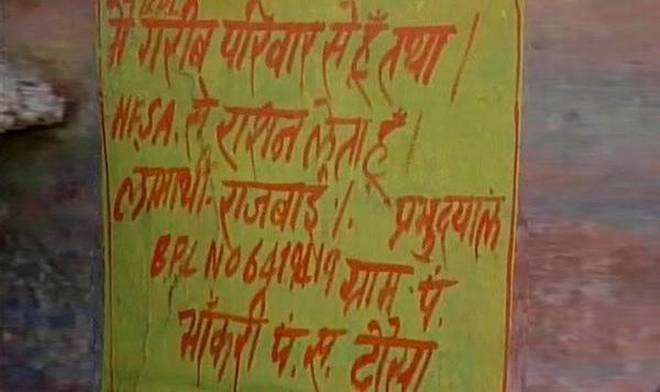 BPL
मैं गरीब परिवार से हूँ तथा।
N.F.S.A. से राशन लेता हूँ।
लाभार्थी:- राजबाई /. प्रभुदयाल
BPL NO ग्राम. पं.
भाँकरी पं. स.